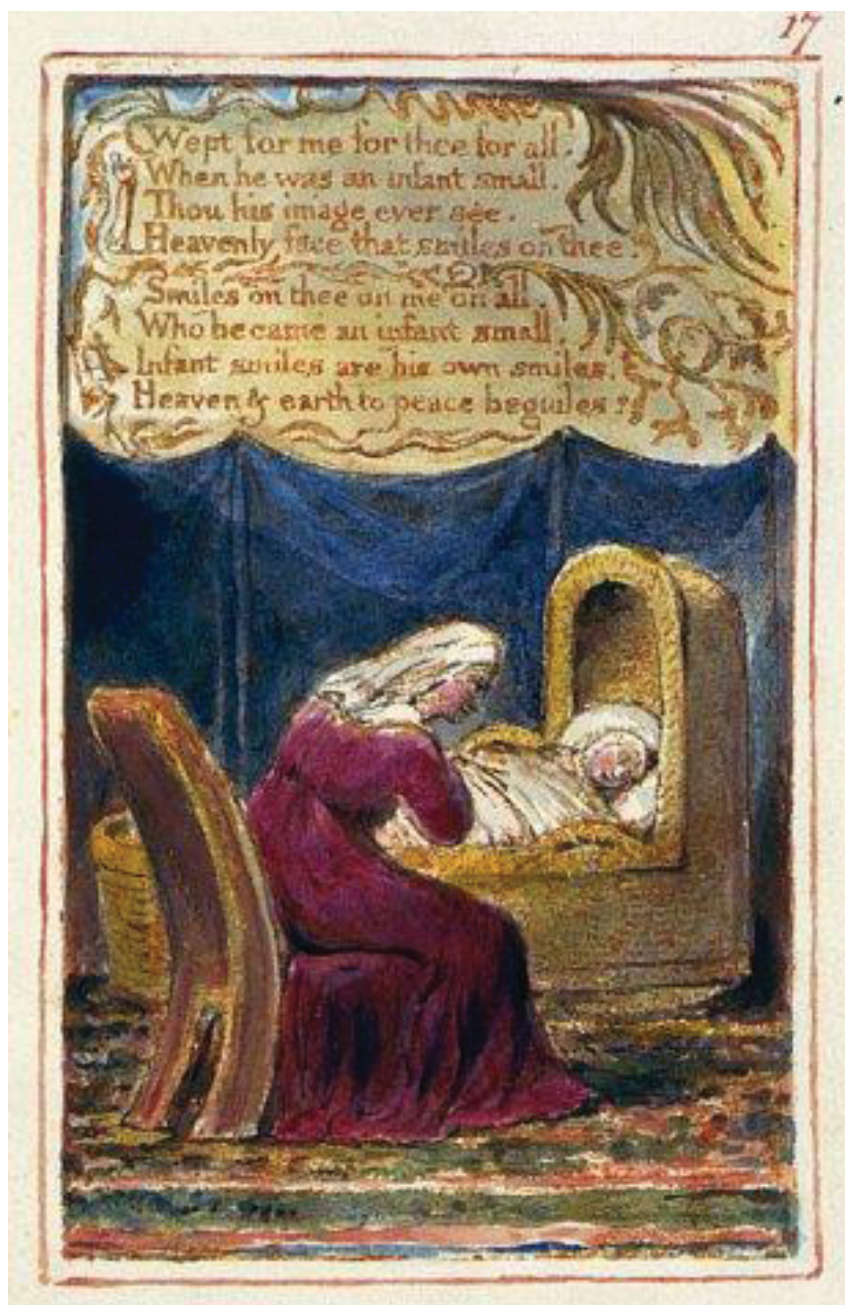 17
Wept for me for thee for all.
When he was an infant small.
Thou his image ever see.
Heavenly face that smiles on thee.
Smiles on thee on me on all.
Who became an infant small.
Infant smiles are his own smiles.
Heaven & earth to peace beguiles.